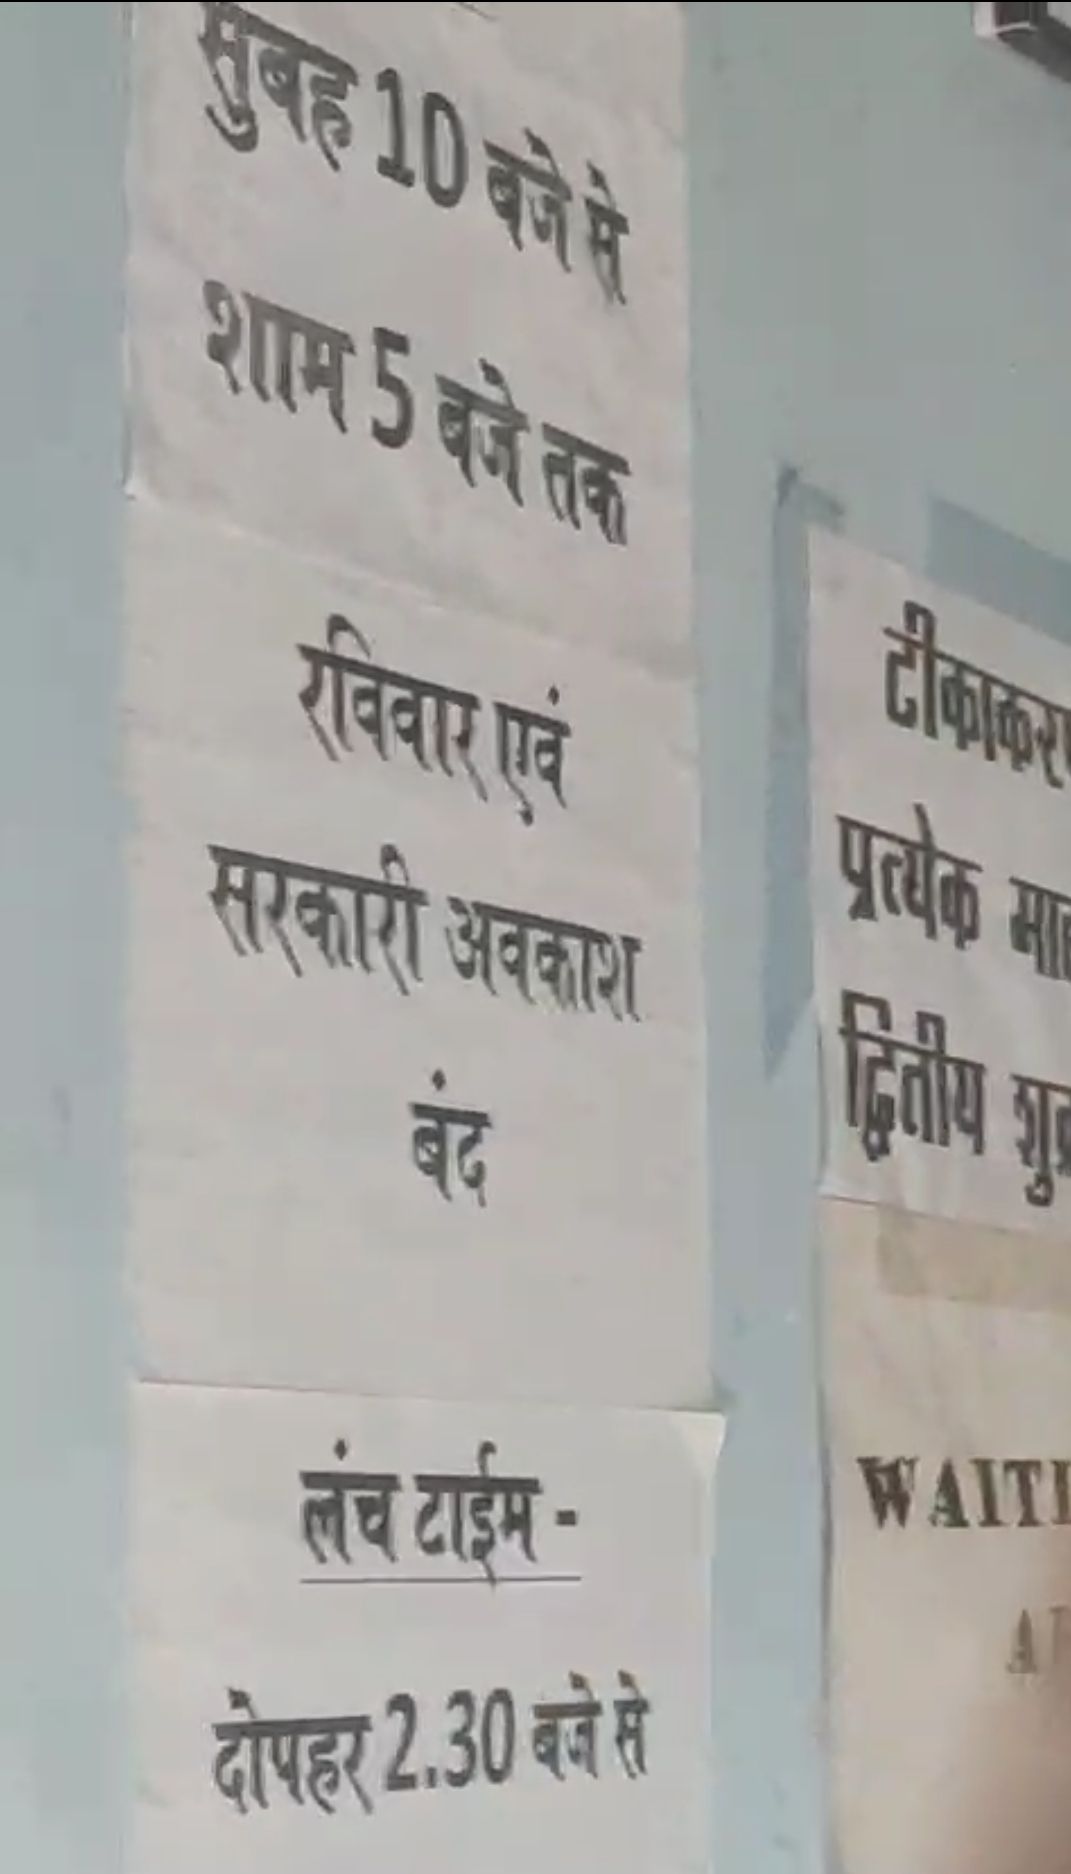 सुबह 10 बजे से
शाम 5 बजे तक
रविवार एवं
सरकारी अवकाश
बंद
लंच टाईम -
दोपहर 2.30 बजे से
टीकाकरण
प्रत्येक
द्वितीय
WAITI